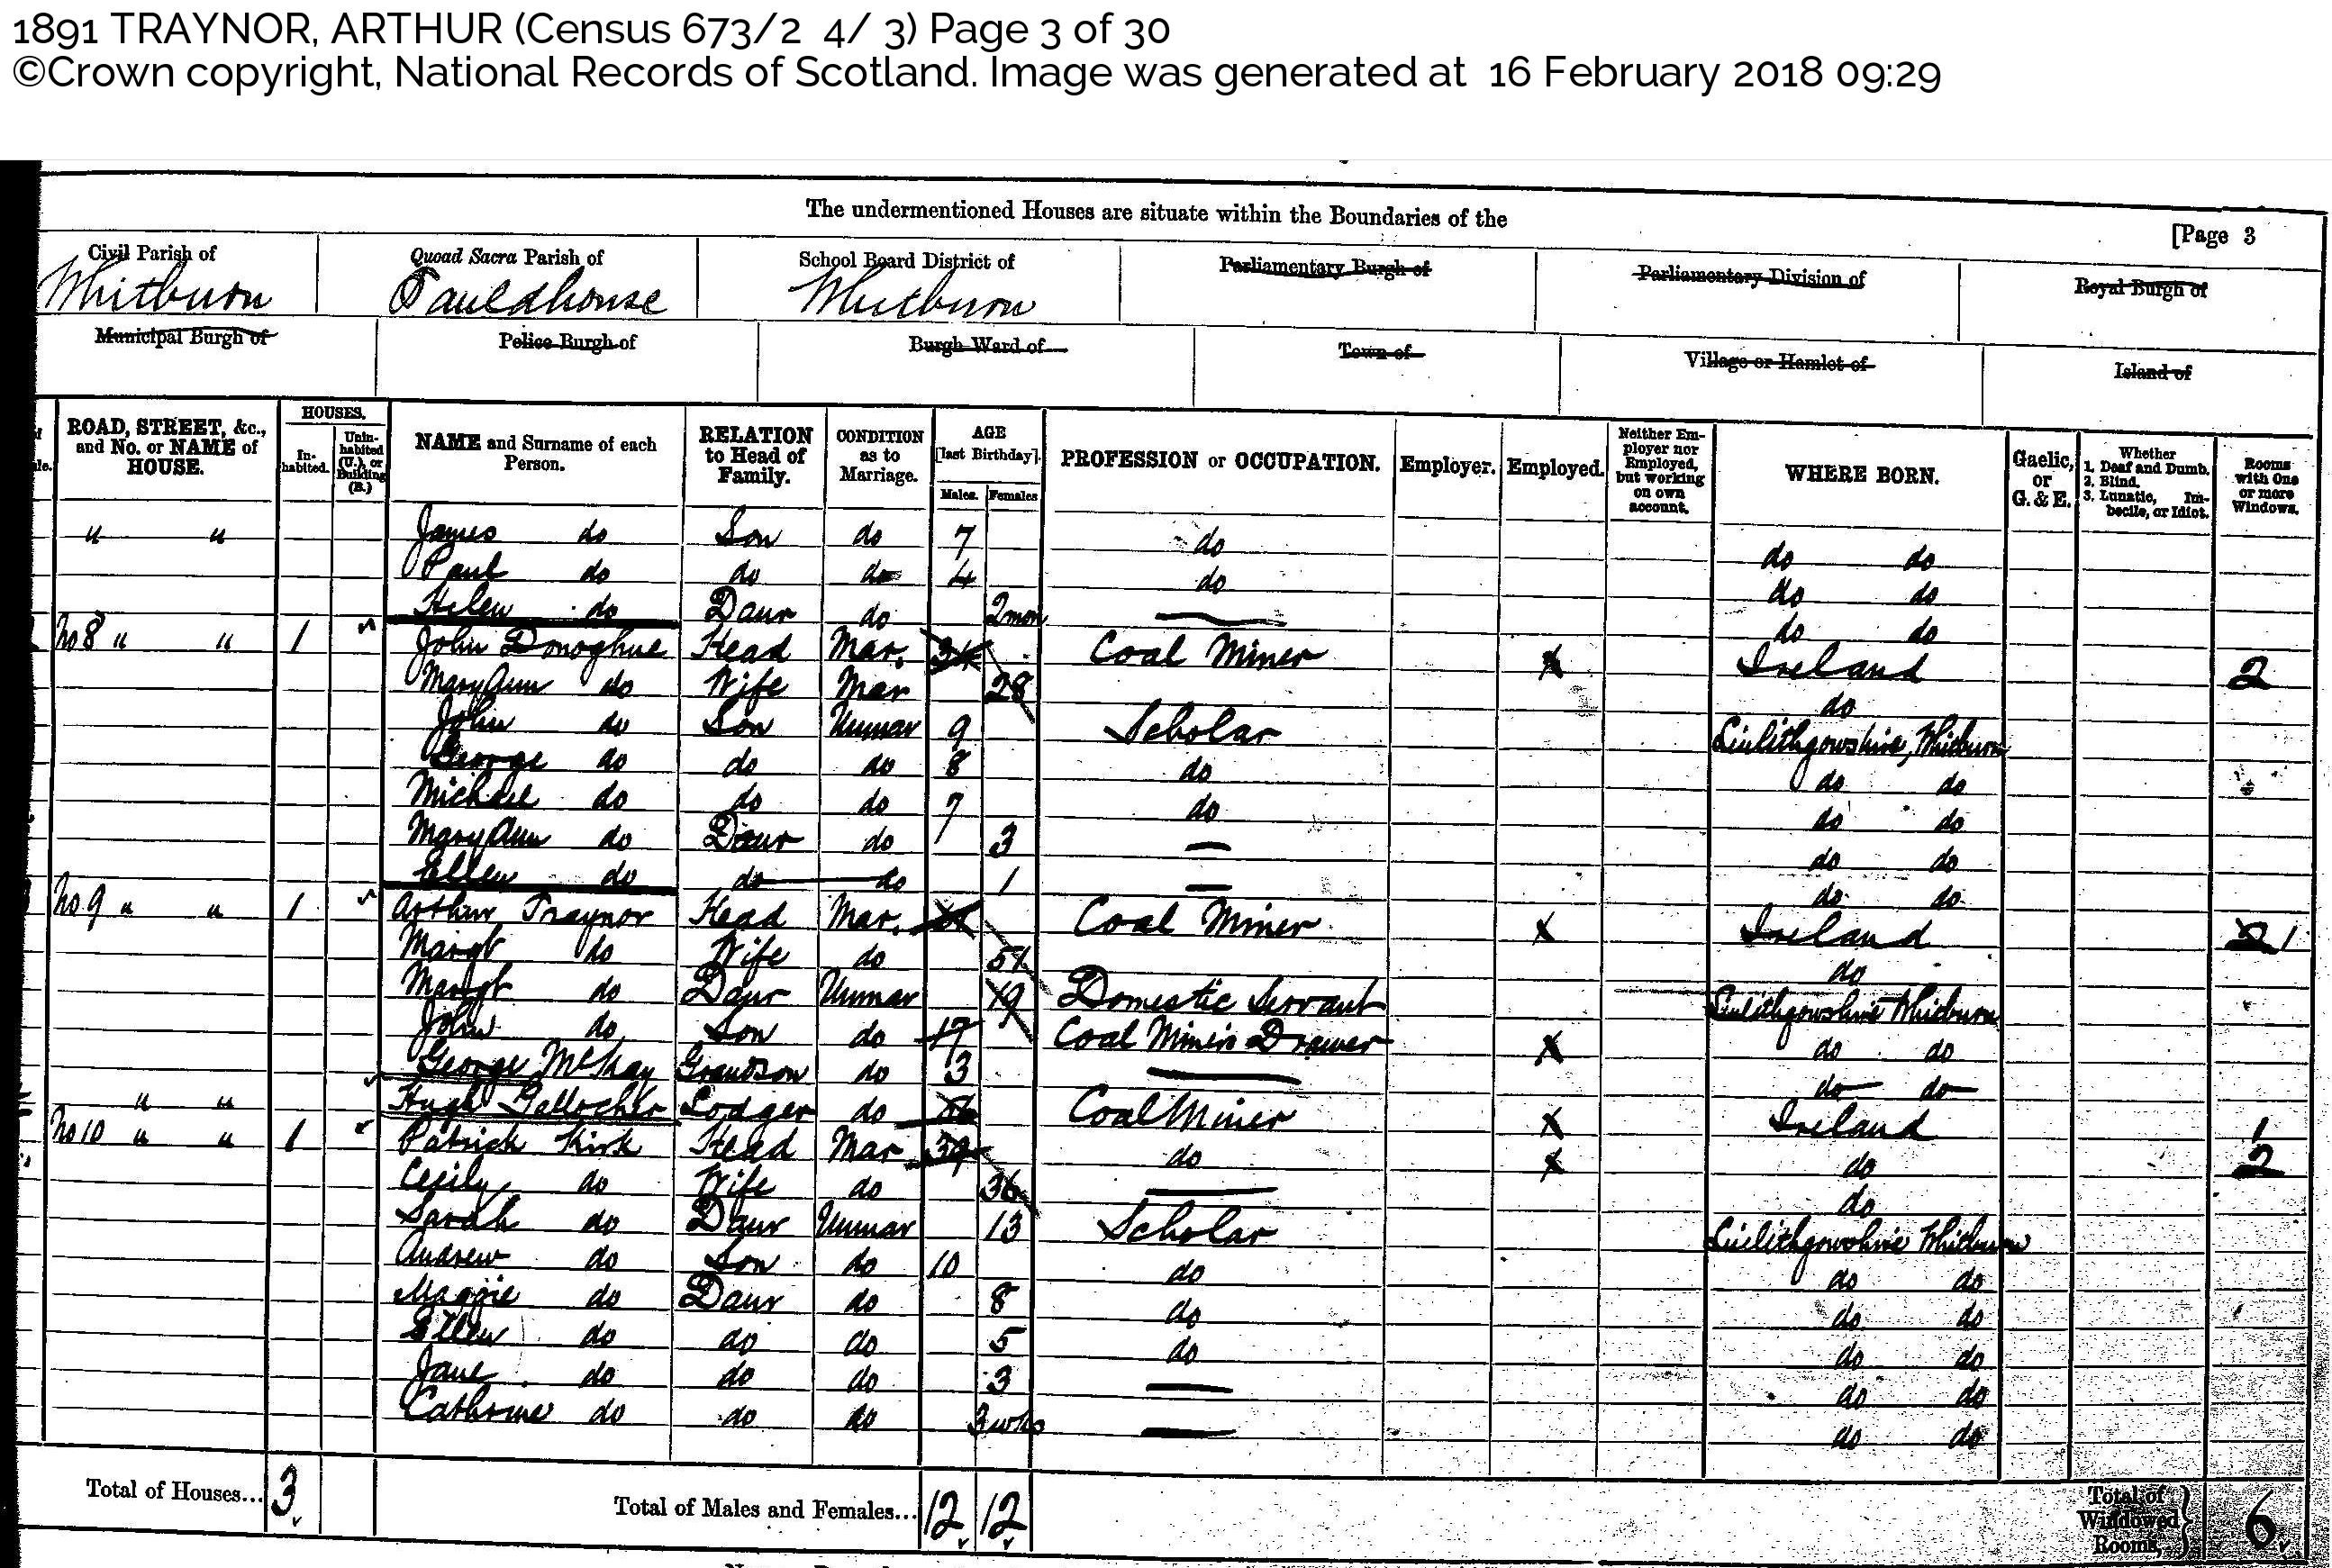 1891 TRAYNOR, ARTHUR (Census 673/2 4/ 3) Page 3 of 30
©Crown copyright, National Records of Scotland. Image was generated at 16 February 2018 09:29
The undermentioned Houses are situate within the Boundaries of the
[Page 3
Civil Parish of Quoad Sacra Parish of School Board District of Parliamentary Burgh of Parliamentary Division of Royal Burgh of
Whitburn Fauldhouse Whitburn
Municipal Burgh of Police Burgh of Burgh Ward of Town of Village or Hamlet of Island of
ROAD, STREET, &c., and No. or NAME of HOUSE. HOUSES. In-habited. Unin-habited (U.), or Building (B.) NAME and Surname of each Person. RELATION to Head of Family. CONDITION as to Marriage. AGE [last Birthday]. Males. Females PROFESSION or OCCUPATION. Employer. Employed. Neither Em-ployer nor Employed, but working on own account. WHERE BORN. Gaelic, or G. & E. Whether 1. Deaf and Dumb. 2. Blind. 3. Lunatic, Im-becile, or Idiot. Rooms with One or more Windows.
" " James do Son do 7 do do do
Paul do do do 4 do do do
Helen do Daur do 2 mon do do
No 8 " " 1 John Donoghue Head Mar. 34 Coal Miner X Ireland 2
Mary Ann do Wife Mar 28 do
John do Son Unmar 9 Scholar Linlithgowshire, Whitburn
George do do do 8 do do do
Michael do do do 7 do do do
Mary Ann do Daur do 3 do do
Ellen do do do 1 do do
No 9 " " 1 Arthur Traynor Head Mar. Coal Miner X Ireland 2 1
Margt do Wife do 51 do
Margt do Daur Unmar 19 Domestic Servant Linlithgowshire Whitburn
John do Son do 17 Coal Miner's Drawer X do do
George McKay Grandson do 3 do do
" " Hugh Gallocher Lodger do Coal Miner X Ireland 1
No 10 " " 1 Patrick Kirk Head Mar 39 do X do 2
Cecily do Wife do 36 do
Sarah do Daur Unmar 13 Scholar Linlithgowshire Whitburn
Andrew do Son do 10 do do do
Maggie do Daur do 8 do do do
Ellen do do do 5 do do do
Jane do do do 3 do do
Cathrine do do do 3 wks do do
Total of Houses... 3 Total of Males and Females... 12 12 Total of Windowed Rooms, 6